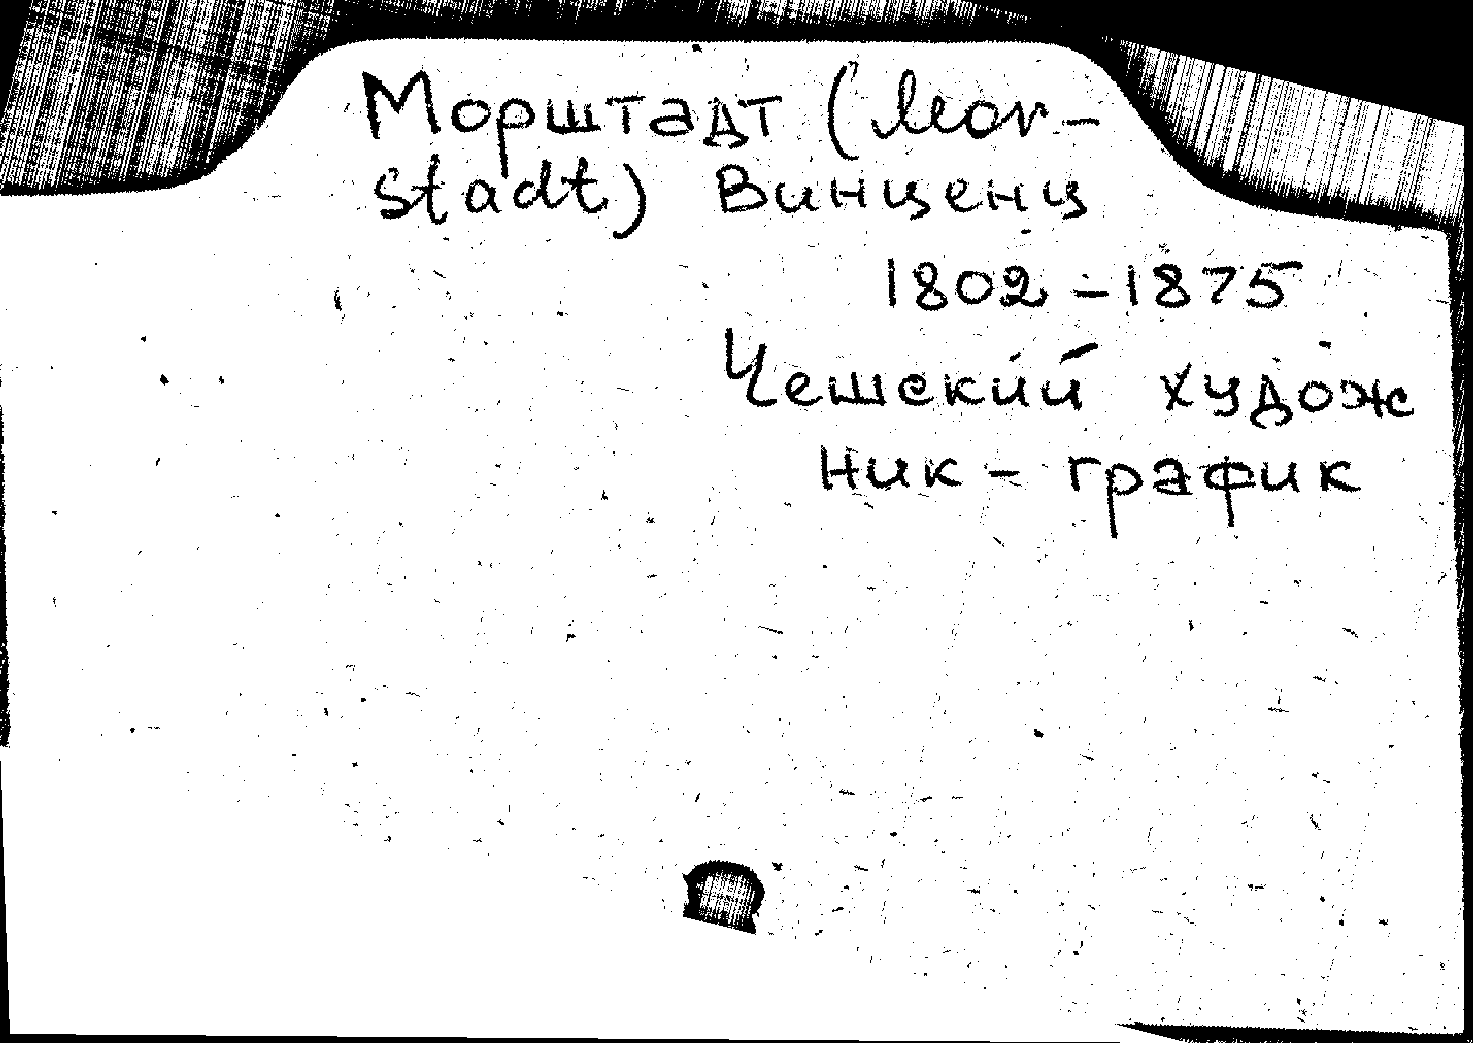 Морштадт (Mor-
stadt) Винценц
1802 - 1875
Чешский худож
ник - график